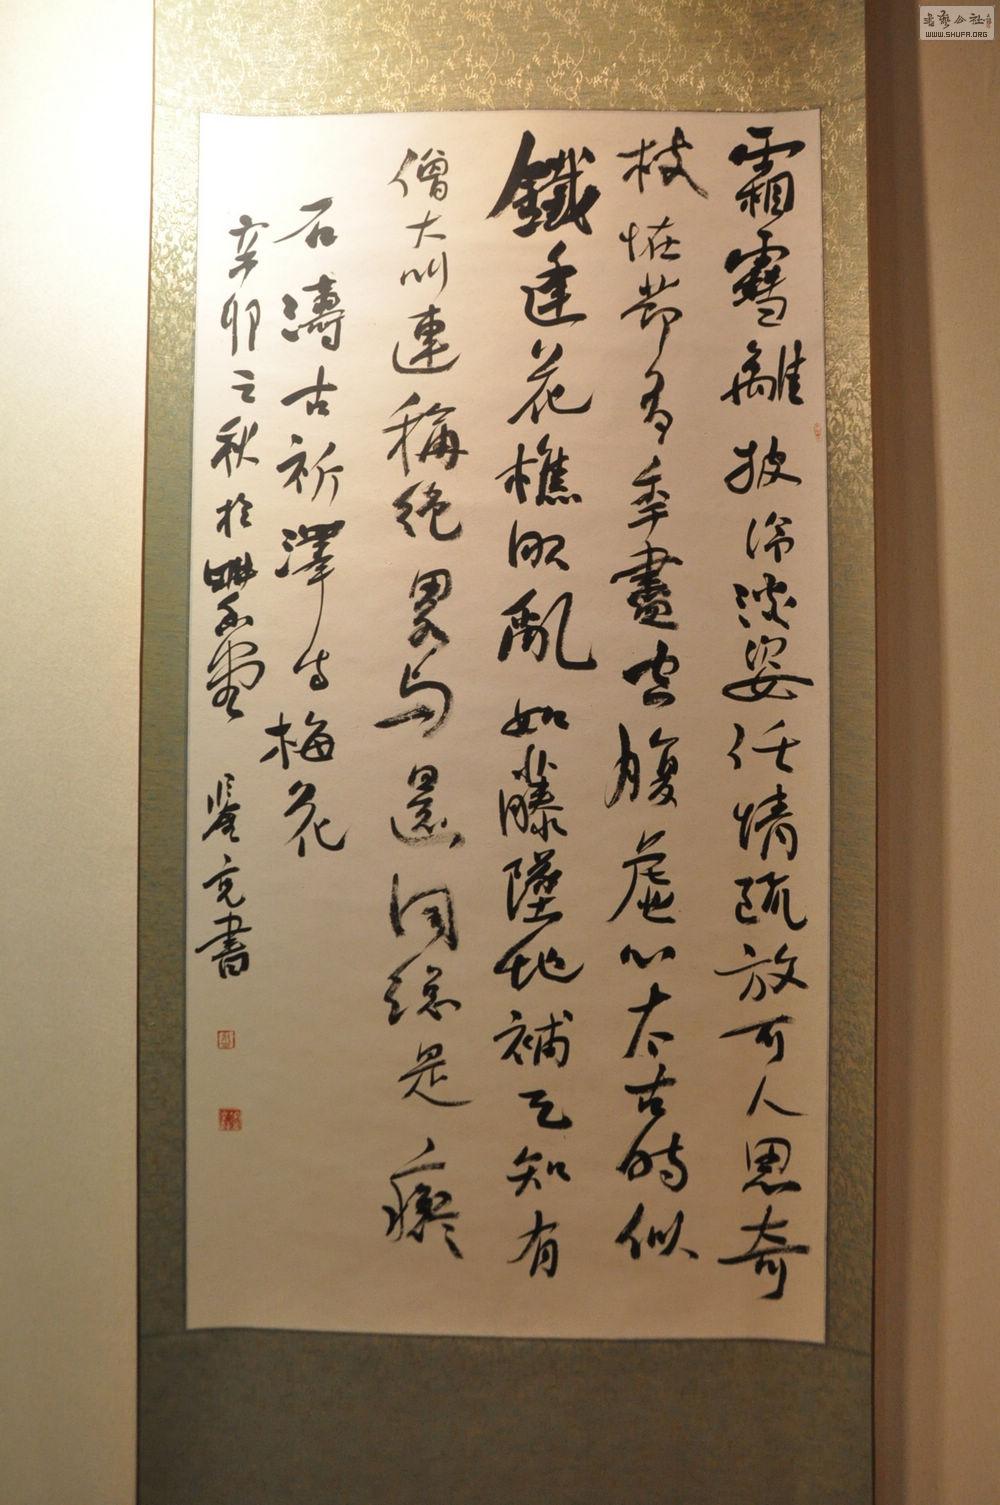 霜雪離披冷淡姿任情疏放可人思奇
枝怪節多年盡空腹虛心太古時似
鐵逢花樵眼亂如藤墜地補天知有
僧大叫連稱絕略與還同總是癡
石濤古祈澤寺梅花
辛卯之秋於
克書
WWW.SHUFA.ORG